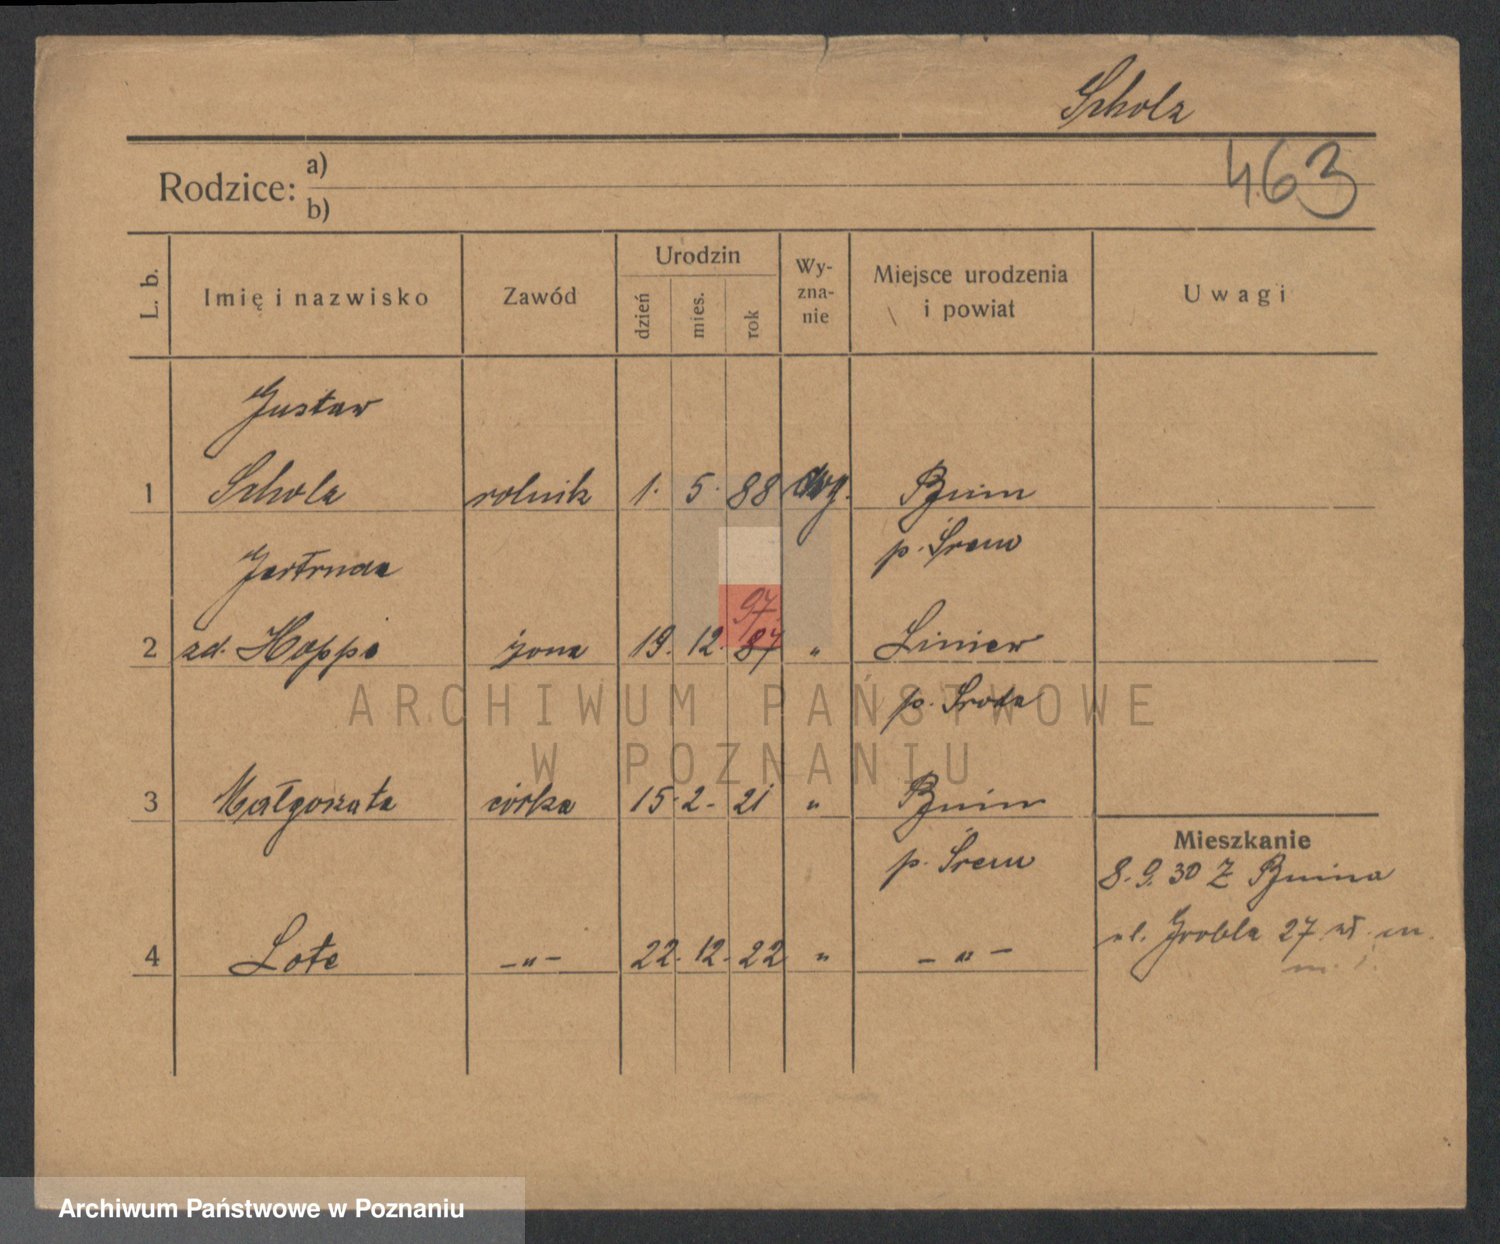 Scholz
463
Rodzice: a)
b)
L. b.
Imię i nazwisko
Zawód
Urodzin
dzień
mies.
rok
Wy-
zna-
nie
Miejsce urodzenia
i powiat
Uwagi
Gustaw
1 Scholz rolnik 1. 5. 88 Bnin
p. Śrem
Gertruda
97
2 zd. Hoppe żona 19. 12. 87 „
p. Środa
3 Małgorzata córka 15. 2. 21 „ Bnin
p. Śrem
Mieszkanie
8. 9. 30 Z Bnina
ul. Grobla 27
4 Lote –„– 22. 12. 22 „ – „ –
ARCHIWUM PAŃSTWOWE
W POZNANIU
Archiwum Państwowe w Poznaniu